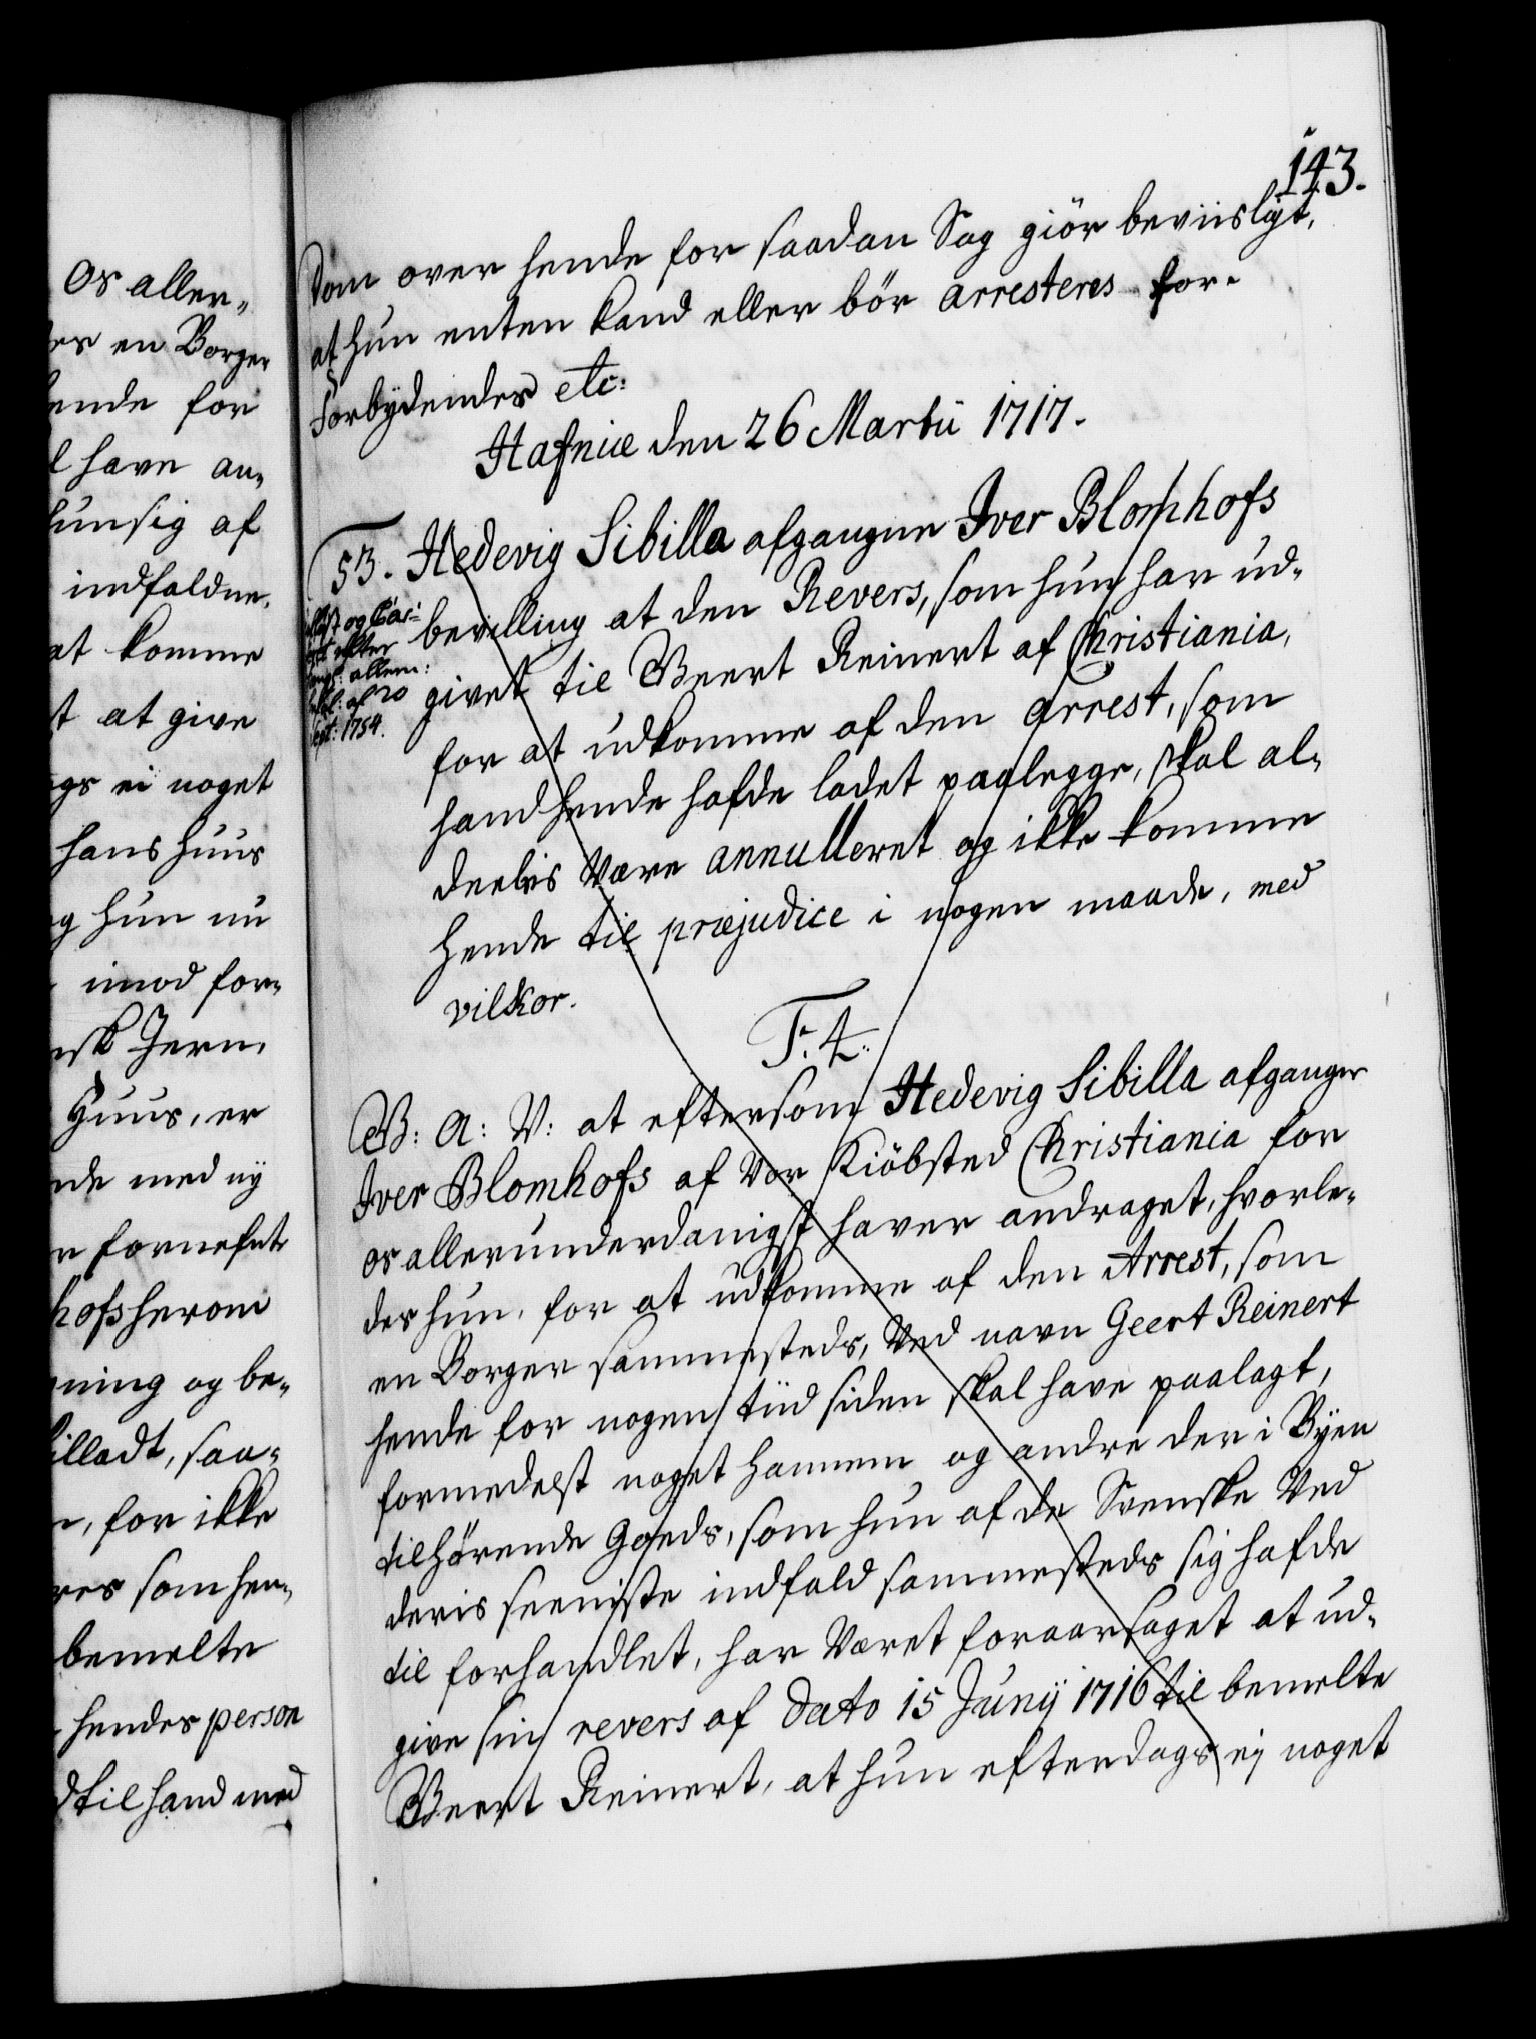 Os aller-
es en Borger
ende for
l have an-
hun sig af
indfaldne
at komme
t at give
gs ei noget
hans huus
g hun nu
imod for-
nsk Jern,
Huus, er
nde med ny
n fornefnte
hofs herom
ning og be-
illadt, saa-
, for ikke
res som hen-
bemelte
hendes person
d til hand med
143.
dom over hende for saadan Sag giör beviisligt,
at hun enten kand eller bör arresteres for-
Forbydendes etc:
Hafniæ den 26 Martii 1717.
53. Hedevig Sibilla afgangne Iver Blomhofs
bevilling at den Revers, som hun har ud-
givet til Geert Reinert af Christiania,
for at udkomme af den arrest, som
hand hende hafde ladet paalegge, skal al-
deeles være annulleret og ikke komme
hende til præjudice i nogen maade, med
vilkor.
og Cas-
efter
allern:
af 20
Sept: 1754.
F. 4.
G: A: V: at eftersom Hedevig Sibilla afgangne
Iver Blomhofs af Vor Kiöbsted Christiania for
os allerunderdanigst haver andraget, hvorle-
des hun, for at udkomme af den Arrest, som
en Borger sammesteds, Ved navn Geert Reinert
hende for nogen tiid siden skal have paalagt,
formedelst noget hannem og andre der i Byen
tilhörende Goeds, som hun af de Svenske Ved
deris seeniste indfald sammesteds sig hafde
til forhandlet, har Været foraarsaget at ud-
give sin revers af Dato 15 Junij 1716 til bemelte
Geert Reinert, at hun efterdags ej noget